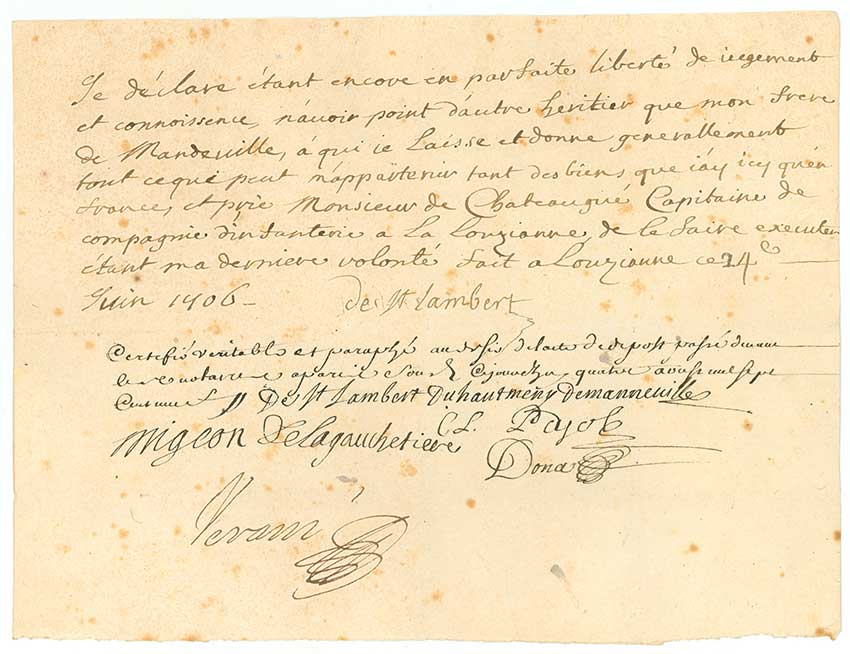 Je déclare étant encore en parfaite liberté de iugement
et connoissence, n'auoir point d'autre heritier que mon frere
de Mandeuille, á qui ie Laisse et donne generallement
tout ce qui peut m'appartenir tant des biens que i'ay icy qu'en
france, et prie Monsieur de Chateaugué Capitaine de
compagnie d'infanterie a La Louzianne, de le faire executer
étant ma derniere volonté fait a Louzianne ce 14e
Juin 1706
de St Lambert
Certifié veritable et paraphé au desir de lacte de depost passé devant
les notaires a paris Cejourdhuy quatre aoust mil sept
Cent neuf De St Lambert Duhautmeny Demanneuille
Migeon Delagauchetiere C.L. Payot
Dona
Verani